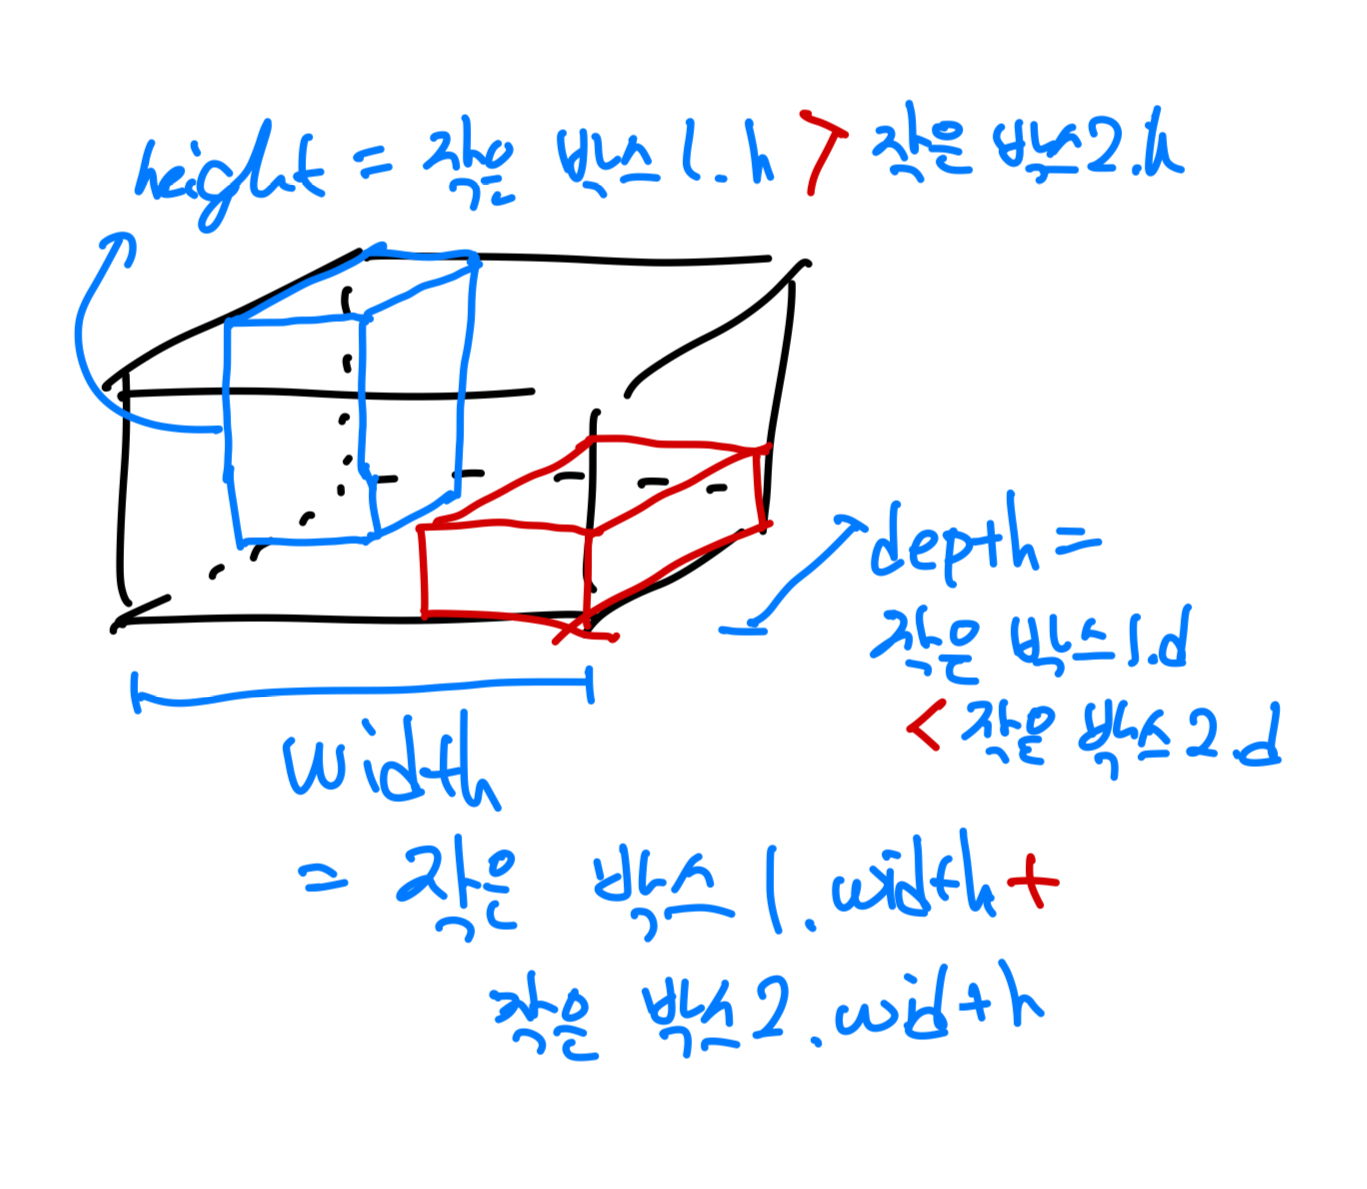 height = 작은 박스1.h > 작은 박스2.h
depth =
작은 박스1.d
< 작은 박스2.d
width
= 작은 박스1.width +
작은 박스2.width